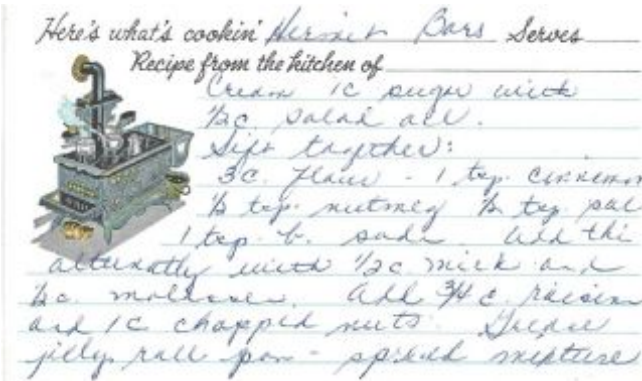 Here's what's cookin' Hermit Bars Serves
Recipe from the kitchen of
Cream 1c sugar with
½c. salad oil.
Sift together:
3c. flour - 1 tsp. cinnamon
½ tsp. nutmeg ½ tsp. sal
1 tsp. b. soda. Add thi
alternatly with ½c. milk and
½c. molasses. Add ¾ c. raisins
and 1c chopped nuts. Grease
jelly roll pan - spread mixture